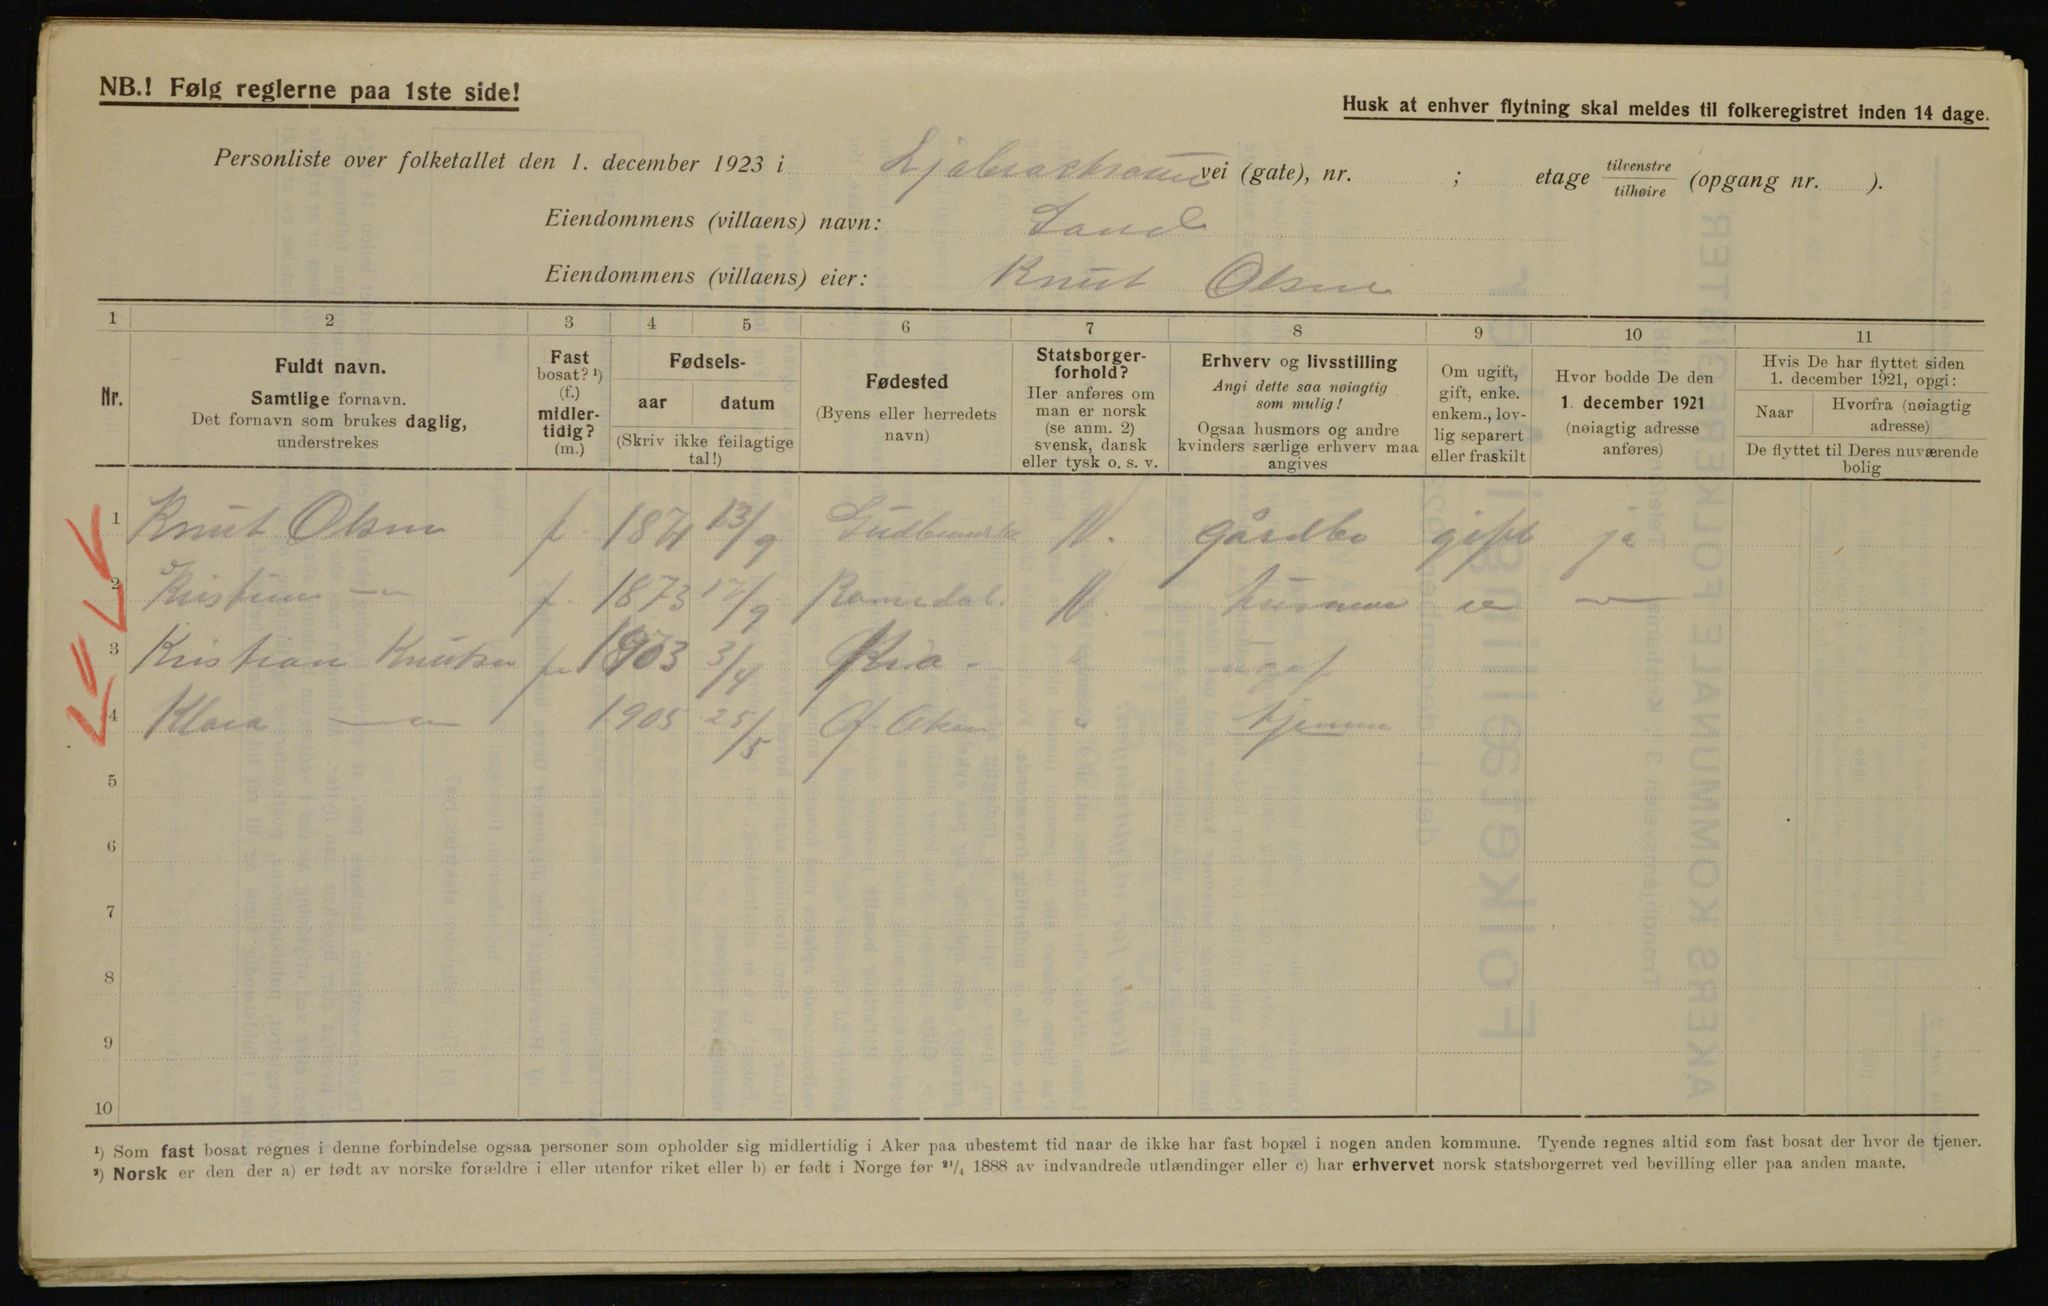 NB.! Følg reglerne paa 1ste side!
Husk at enhver flytning skal meldes til folkeregistret inden 14 dage.
Personliste over folketallet den 1. december 1923 i vei (gate), nr. ; etage tilvenstre tilhøire (opgang nr. ).
Eiendommens (villaens) navn: Sand
Eiendommens (villaens) eier: Knut Olsen
1 2 3 4 5 6 7 8 9 10 11
Nr.
Fuldt navn.
Samtlige fornavn.
Det fornavn som brukes daglig,
understrekes
Fast
bosat? ¹)
(f.)
midler-
tidig?
(m.)
Fødsels-
aar datum
(Skriv ikke feilagtige
tal!)
Fødested
(Byens eller herredets
navn)
Statsborger-
forhold?
Her anføres om
man er norsk
(se anm. 2)
svensk, dansk
eller tysk o. s. v.
Erhverv og livsstilling
Angi dette saa nøiagtig
som mulig!
Ogsaa husmors og andre
kvinders særlige erhverv maa
angives
Om ugift,
gift, enke.
enkem., lov-
lig separert
eller fraskilt
Hvor bodde De den
1. december 1921
(nøiagtig adresse
anføres)
Hvis De har flyttet siden
1. december 1921, opgi:
Naar Hvorfra (nøiagtig
adresse)
De flyttet til Deres nuværende
bolig
1 Knut Olsen f. 1871 13/9 N. gårdbr gift ja
2 f. 1873 /9 Romsdal. N. husmor
3 Kristian Knutsen f. 1903 3/4 Kra. " ugift
4 Klara 1905 25/5 Ø. Aker " hjemme
5
6
7
8
9
10
¹) Som fast bosat regnes i denne forbindelse ogsaa personer som opholder sig midlertidig i Aker paa ubestemt tid naar de ikke har fast bopæl i nogen anden kommune. Tyende regnes altid som fast bosat der hvor de tjener.
²) Norsk er den der a) er født av norske forældre i eller utenfor riket eller b) er født i Norge før ²¹/₄ 1888 av indvandrede utlændinger eller c) har erhvervet norsk statsborgerret ved bevilling eller paa anden maate.